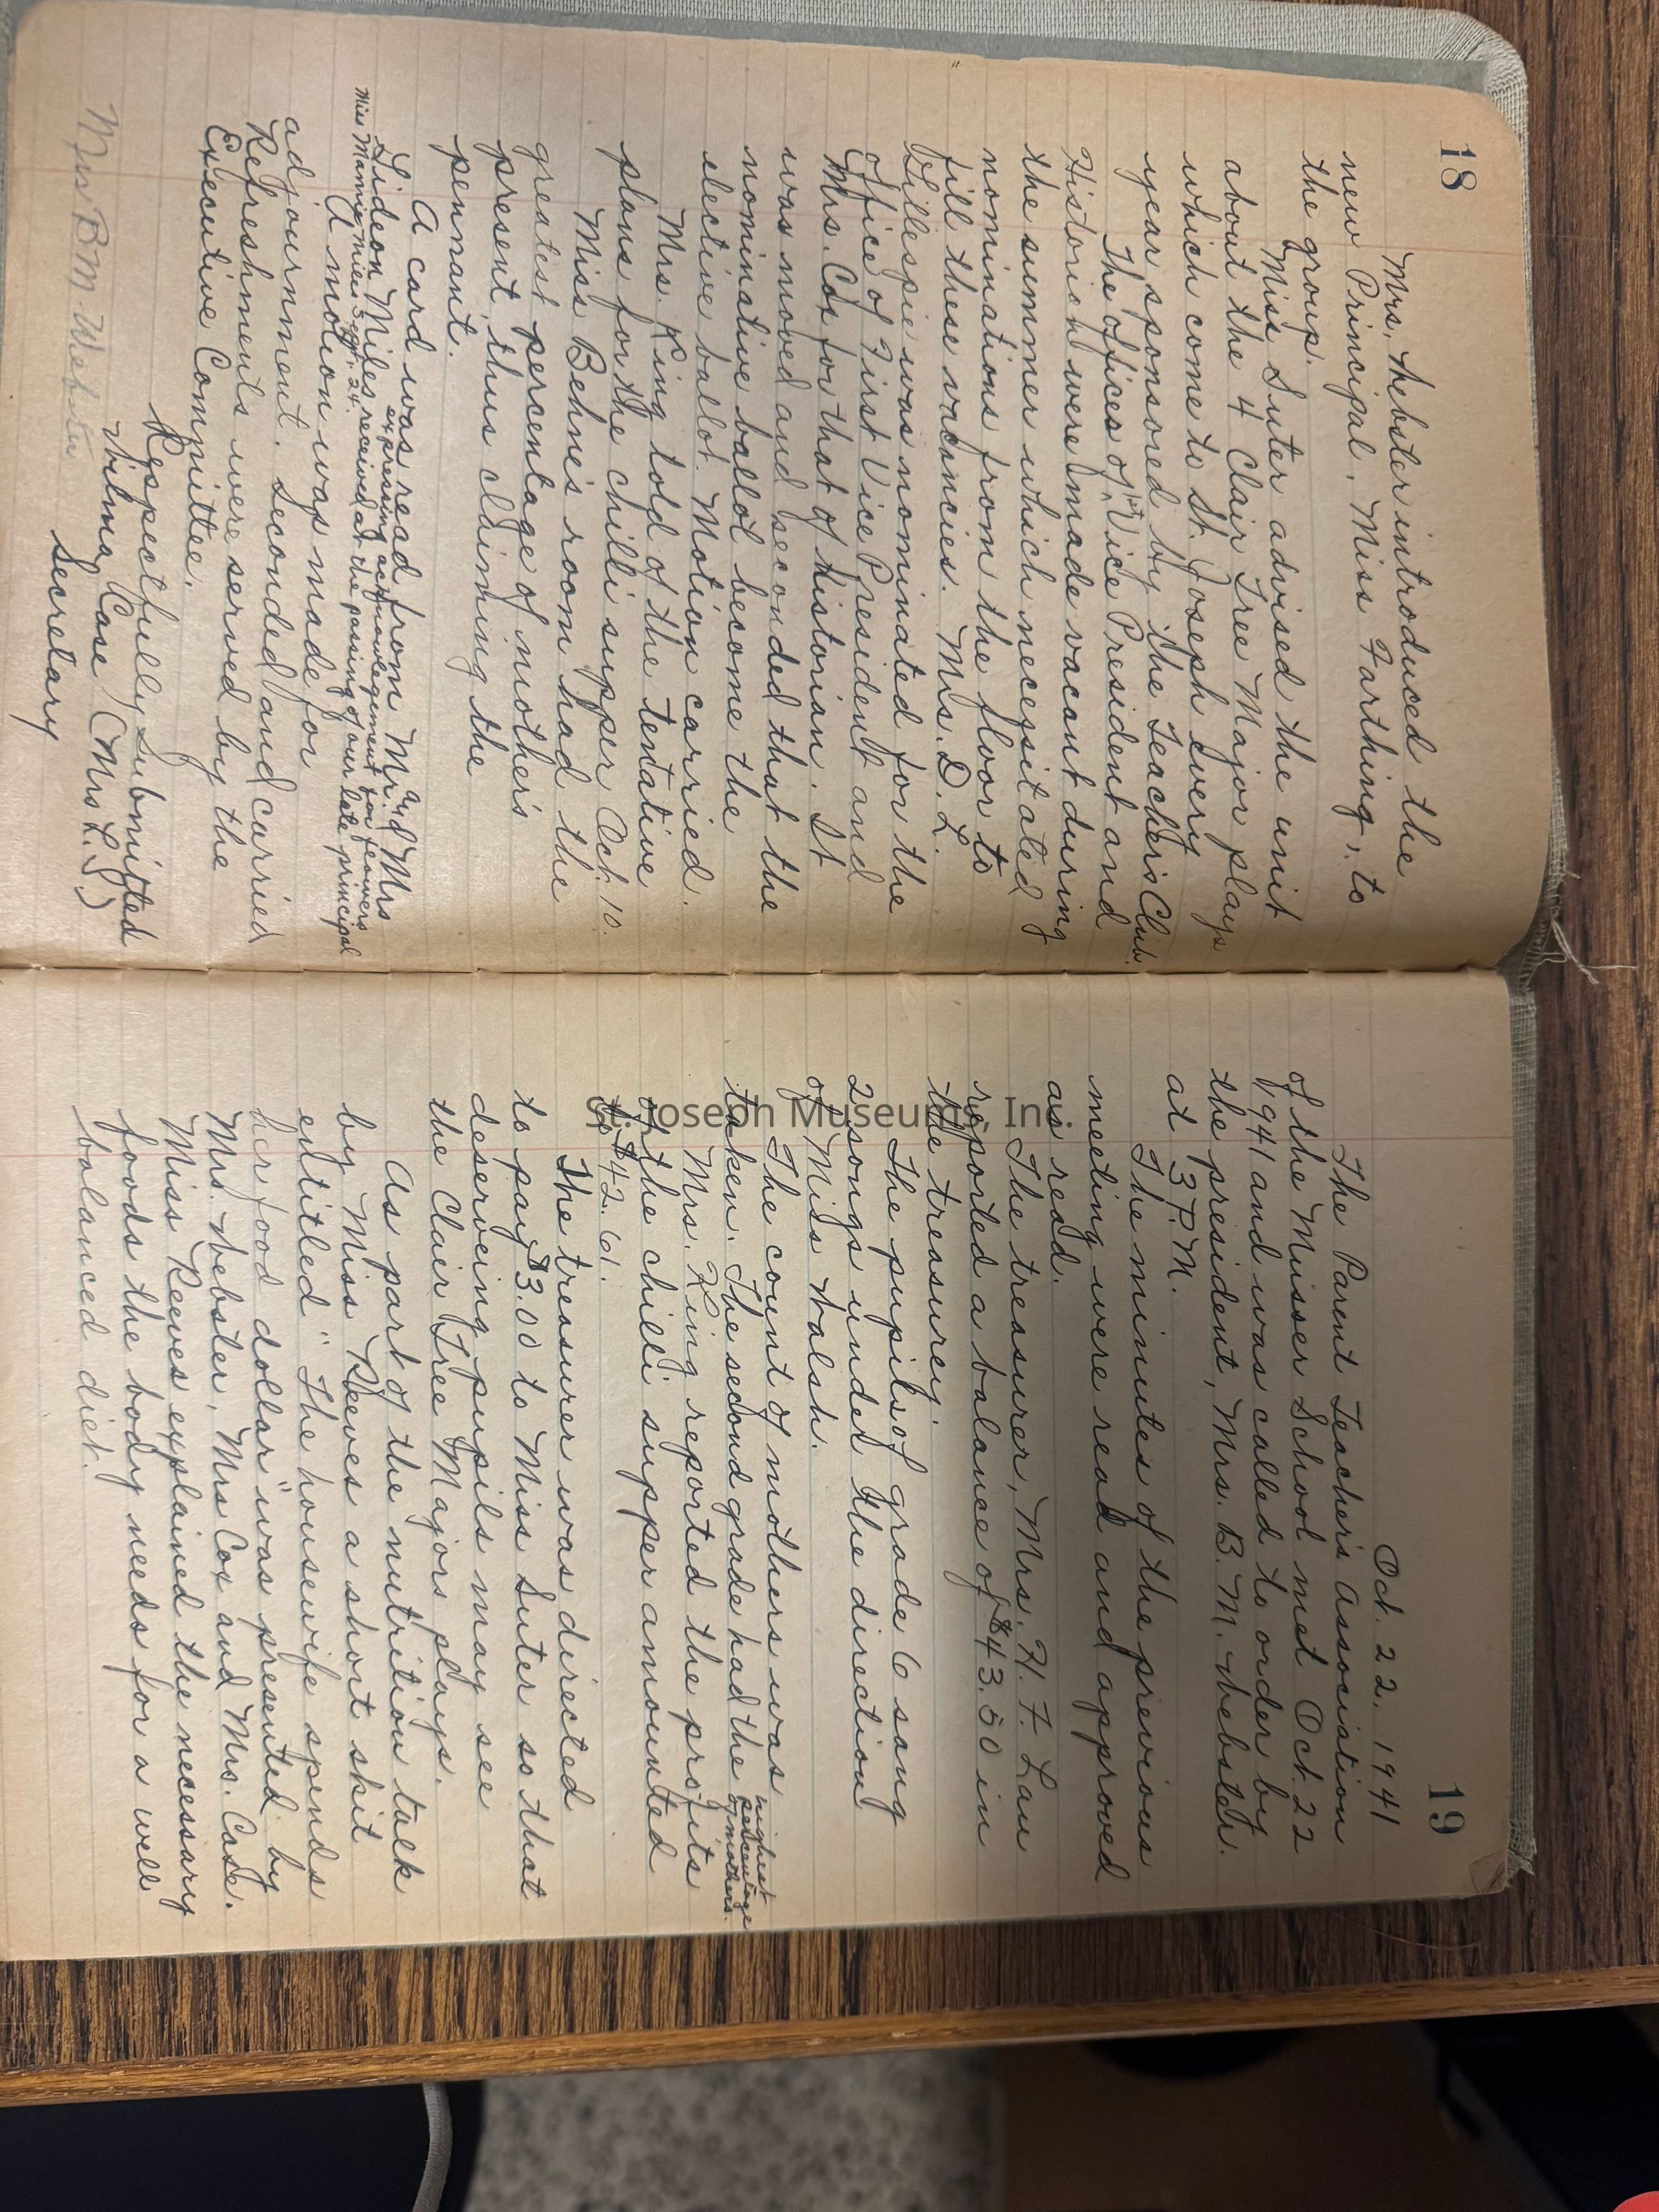 18
Mrs. Webster introduced the
new Principal, Miss Farthing, to
the group.
Miss Suter advised the unit
about the 4 Clair Tree Major plays
which come to St. Joseph every
year sponsored by the Teacher's Club.
The offices of 1st Vice President and
Historian were made vacant during
the summer which necessitated
nominations from the floor to
fill these vacancies. Mrs. D. L.
Gillespie was nominated for the
office of First Vice President and
Mrs. Cox for that of Historian. It
was moved and seconded that the
nominative ballot become the
elective ballot. Motion carried.
Mrs. King told of the tentative
plans for the chilli supper Oct. 10.
Miss Behne's room had the
greatest percentage of mother's
present, thus claiming the
pennant.
A card was read from Mr. and Mrs
Gideon Miles expressing acknowlegement for flowers
Miss Mamie Miles Sept. 24. received at the passing of our late principal
A motion was made for
adjournment. Seconded and carried
Refreshments were served by the
Executive Committee.
Respectfully Submitted
Wilma Case (Mrs L. S.)
Secretary
Mrs B M Webster
19
Oct. 22. 1941
The Parent Teacher's Association
of the Musser School met Oct. 22
1941 and was called to order by
the president, Mrs. B. M. Webster.
at 3 P.M.
The minutes of the previous
meeting were read and approved
as read.
The treasurer, Mrs. H. F. Lau
reported a balance of $43.50 in
the treasurey.
The pupils of grade 6 sang
2 songs under the direction
of Miss Walsh.
The count of mothers was
taken. The second grade had the highest percentage of mothers.
Mrs. King reported the profits
of the chilli supper amounted
to $42.61.
The treasurer was directed
to pay $3.00 to Miss Suter so that
deserveing pupils may see
the Clair Tree Majors plays.
As part of the nutrition talk
by Miss Reeves a short skit
entitled "The housewife spends
her food dollar" was presented by
Mrs. Webster, Mrs Cox and Mrs. Case.
Miss Reeves explained the necessary
foods the body needs for a well
balanced diet.
St. Joseph Museums, Inc.